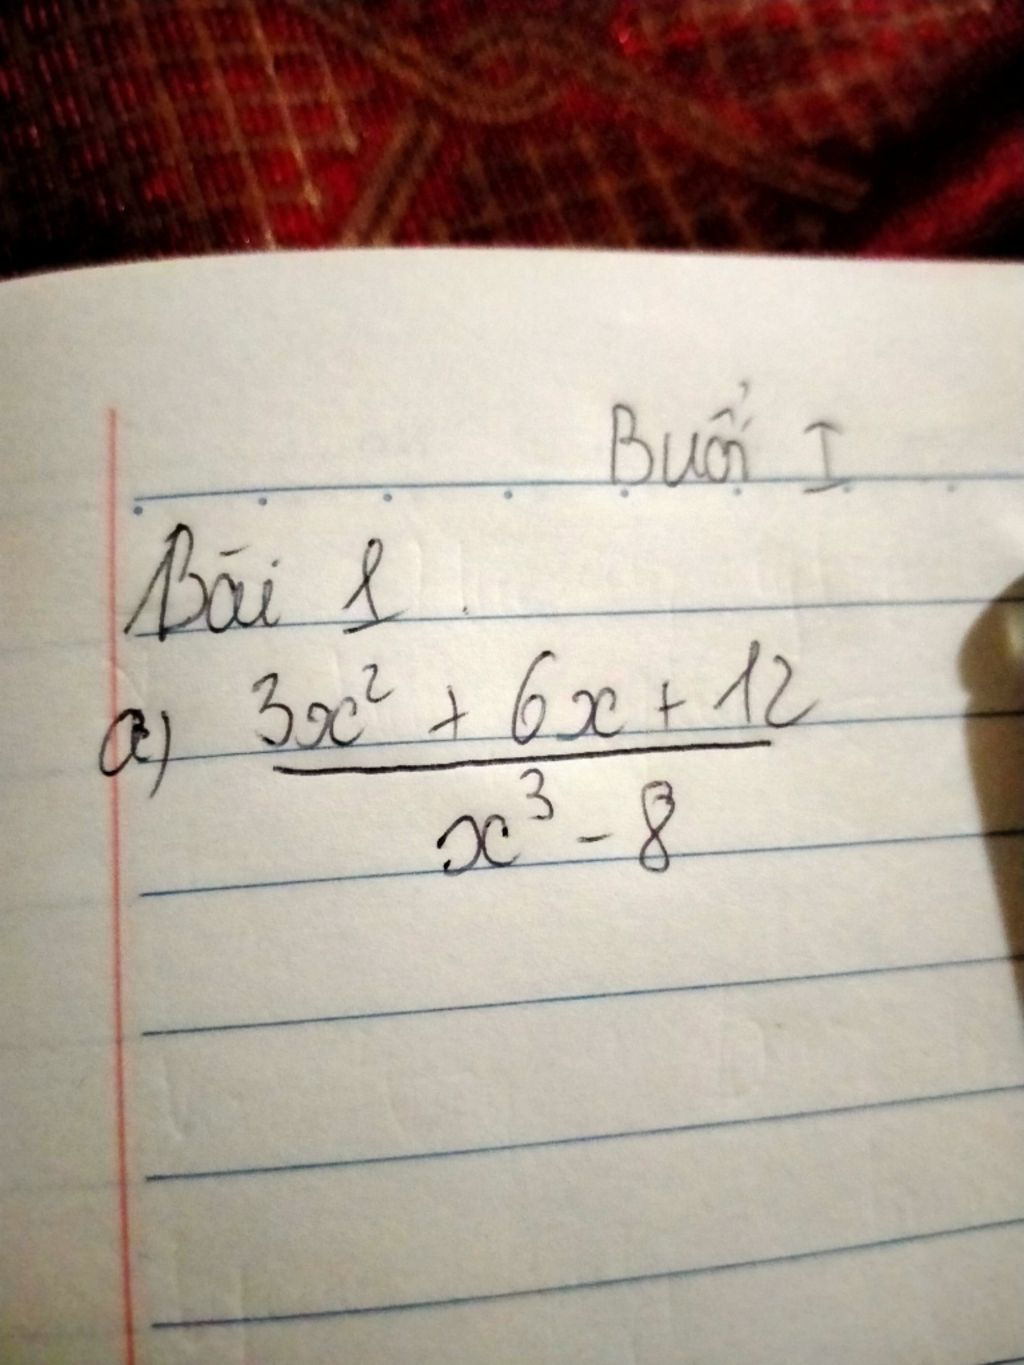 Buổi I
Bài 1
a) 3x² + 6x + 12
x³ - 8